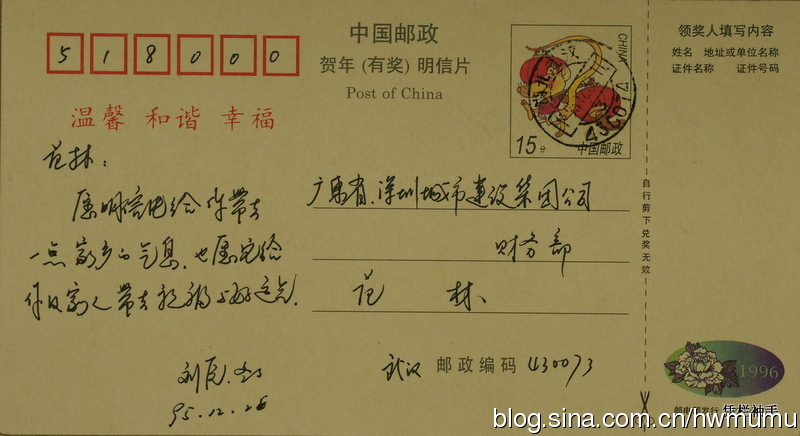 518000
中国邮政
贺年(有奖)明信片
Post of China
CHINA
15分
中国邮政
领奖人填写内容
姓名 地址或单位名称
证件名称 证件号码
温馨 和谐 幸福
范林:
愿明信片给你带去
一点家乡的气息,也愿它给
你及家人带去祝福
刘
95.12.26
广东省.深圳城市建设集团公司
财务部
范 林
武汉 邮政编码 430073
自行剪下兑奖无效
1996
凭栏袖手
blog.sina.com.cn/hwmumu